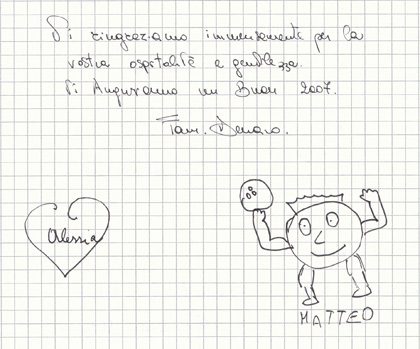 Vi ringraziamo immensamente per la
vostra ospitalità e gentilezza.
Vi Auguriamo un Buon 2007.
Fam. Denaro.
Alessia
MATTEO